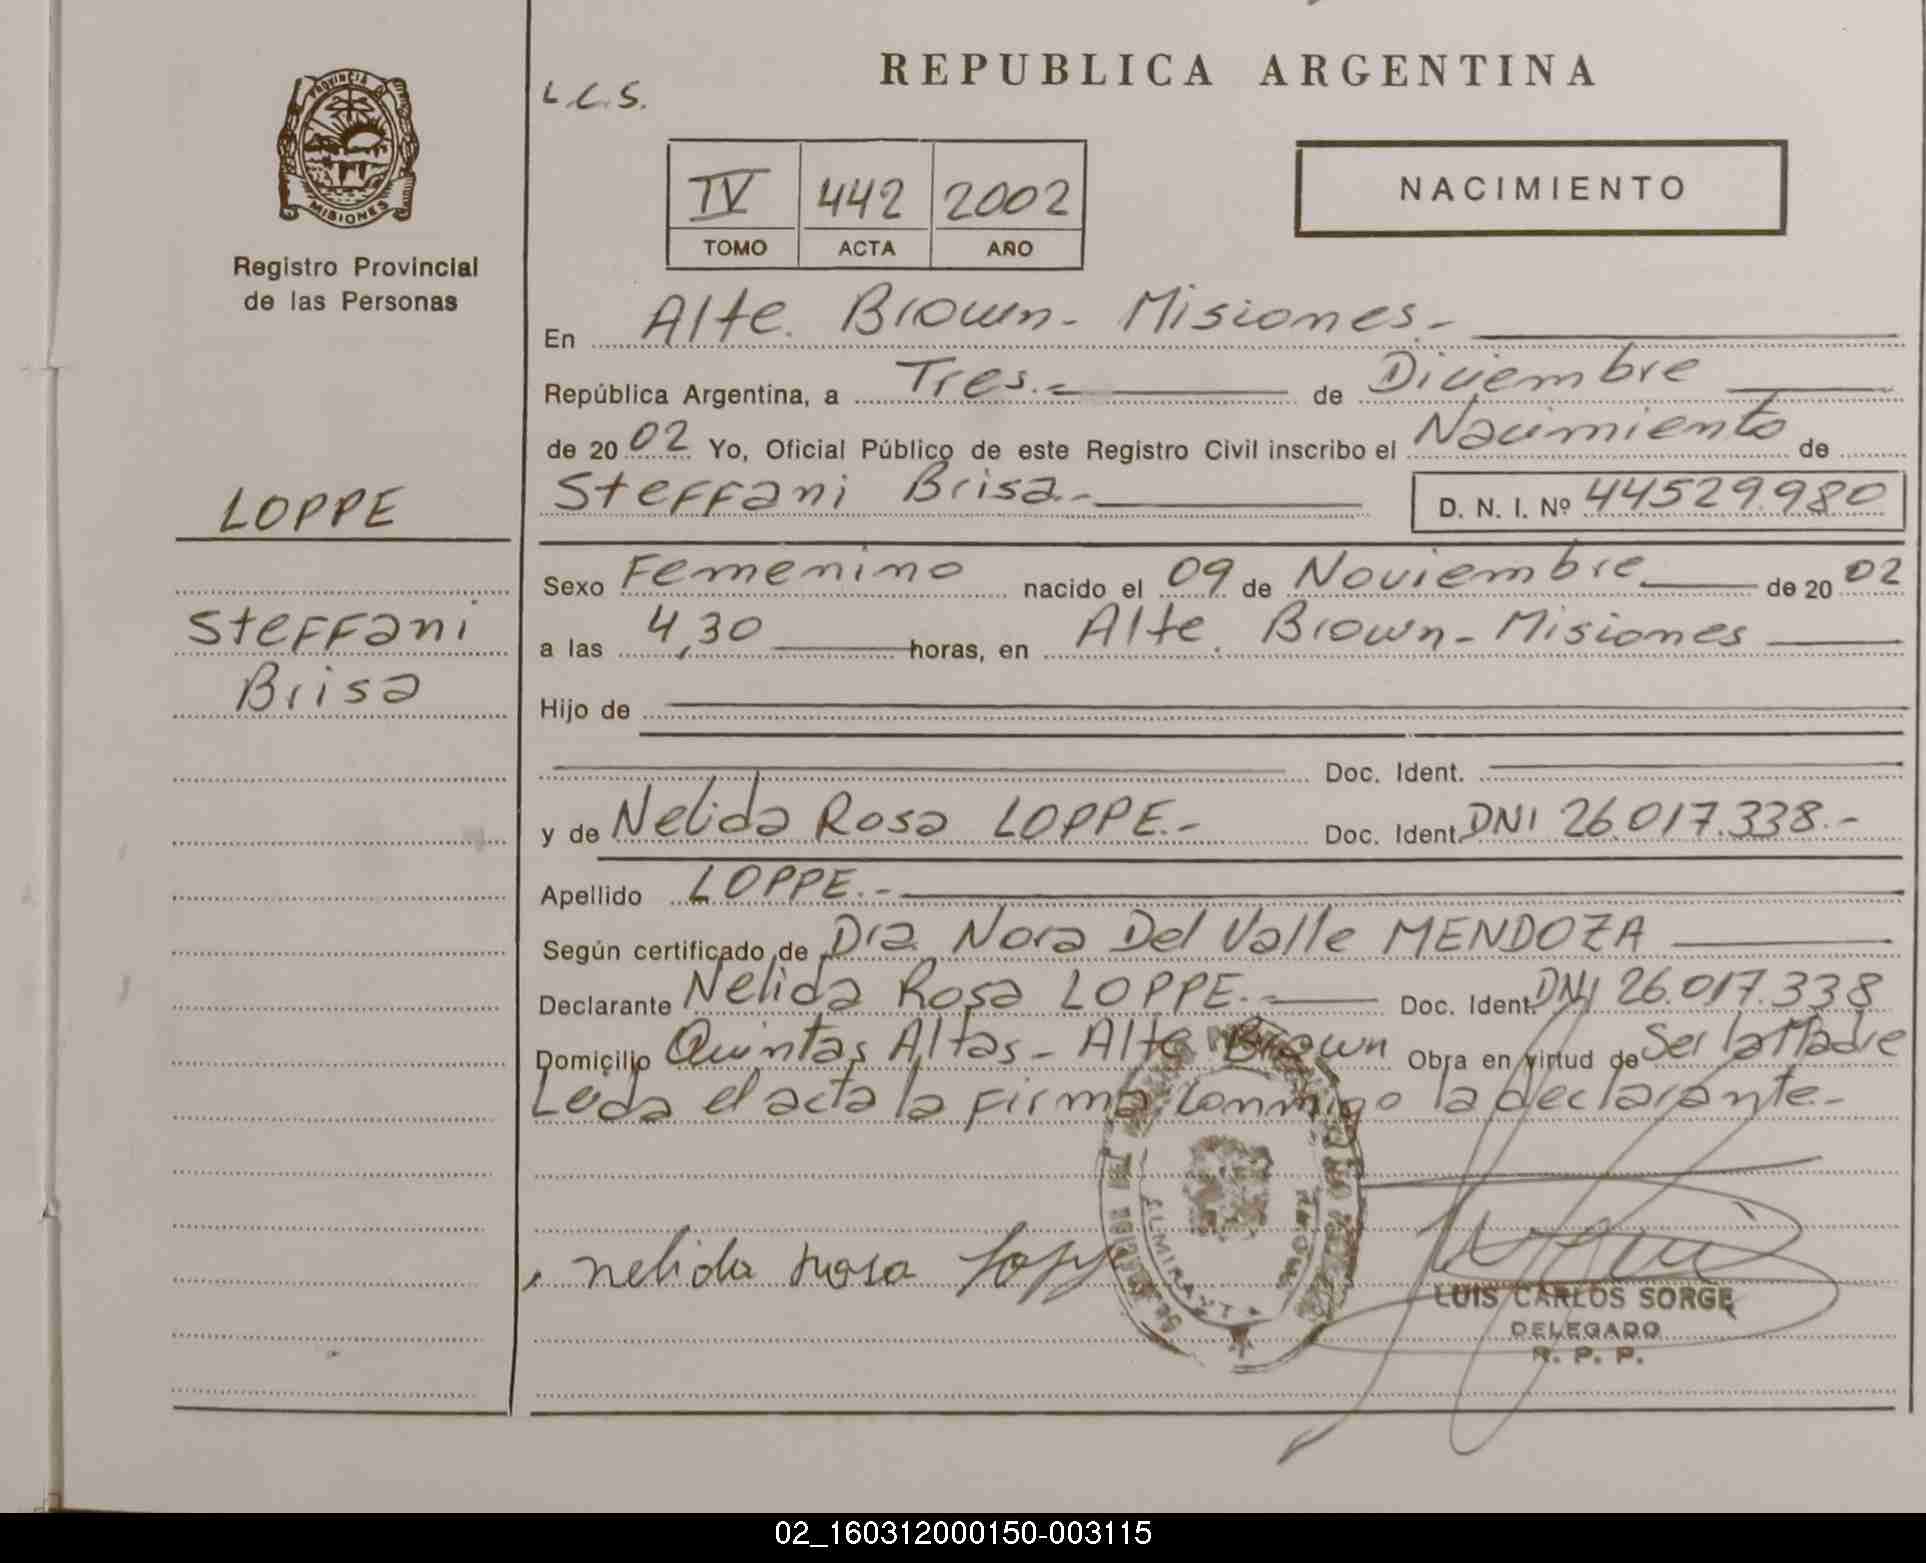 REPUBLICA ARGENTINA
L.C.S.
PROVINCIA DE
MISIONES
Registro Provincial
de las Personas
IV 442 2002
TOMO ACTA AÑO
NACIMIENTO
En Alte. Brown - Misiones.-
República Argentina, a Tres.- de Diciembre
de 2002 Yo, Oficial Público de este Registro Civil inscribo el Nacimiento de
Steffani Brisa.- D. N. I. Nº 44529.980
LOPPE
Steffani
Brisa
Sexo Femenino nacido el 09 de Noviembre de 20 02
a las 4,30 horas, en Alte. Brown - Misiones
Hijo de
Doc. Ident.
y de Nelida Rosa LOPPE.- Doc. Ident. DNI 26.017.338.-
Apellido LOPPE.-
Según certificado de Dra. Nora Del Valle MENDOZA
Declarante Nelida Rosa LOPPE.- Doc. Ident. DNI 26.017.338
Domicilio Quintas Altas - Alte Brown Obra en virtud de Ser la Madre
Leida el acta la firma conmigo la declarante.-
nelida rosa lopp
ALMIRANT
LUIS CARLOS SORGE
DELEGADO
R. P. P.
02_160312000150-003115